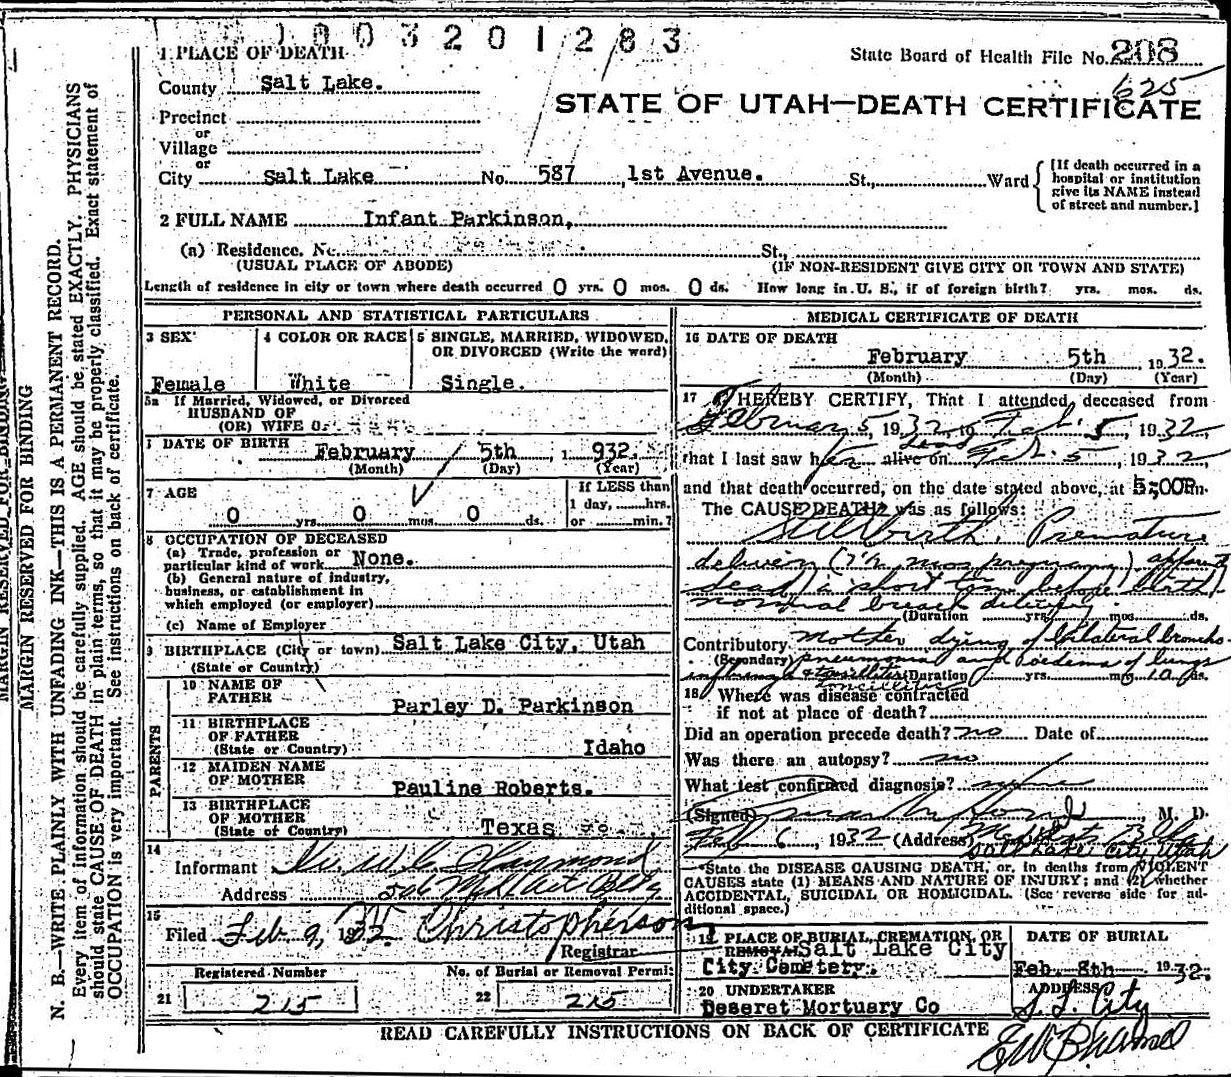 1003201283
State Board of Health File No. 208
625
1 PLACE OF DEATH
County Salt Lake.
STATE OF UTAH—DEATH CERTIFICATE
Precinct
or
Village
or
City Salt Lake No. 587, 1st Avenue. St., Ward
[If death occurred in a hospital or institution give its NAME instead of street and number.]
2 FULL NAME Infant Parkinson,
(a) Residence. No. St.,
(USUAL PLACE OF ABODE) (IF NON-RESIDENT GIVE CITY OR TOWN AND STATE)
Length of residence in city or town where death occurred 0 yrs. 0 mos. 0 ds. How long in U. S., if of foreign birth? yrs. mos. ds.
PERSONAL AND STATISTICAL PARTICULARS
3 SEX
Female
4 COLOR OR RACE
White
5 SINGLE, MARRIED, WIDOWED, OR DIVORCED (Write the word)
Single.
5a If Married, Widowed, or Divorced
HUSBAND OF
(OR) WIFE OF
DATE OF BIRTH February 5th, 1 932.
(Month) (Day) (Year)
7 AGE
0 yrs. 0 mos. 0 ds.
If LESS than
1 day, hrs.
or min.?
8 OCCUPATION OF DECEASED
(a) Trade, profession or
particular kind of work None.
(b) General nature of industry,
business, or establishment in
which employed (or employer)
(c) Name of Employer
9 BIRTHPLACE (City or town) Salt Lake City, Utah
(State or Country)
PARENTS
10 NAME OF FATHER
Parley D. Parkinson
11 BIRTHPLACE OF FATHER
(State or Country) Idaho
12 MAIDEN NAME OF MOTHER
Pauline Roberts.
13 BIRTHPLACE OF MOTHER
(State of Country) Texas
14
Informant Dr. W. C.
Address
15
Filed Feb. 9, 1932. Christopherson
Registrar
Registered Number
21 215
No. of Burial or Removal Permit
22 215
MEDICAL CERTIFICATE OF DEATH
16 DATE OF DEATH
February 5th, 1932.
(Month) (Day) (Year)
17 I HEREBY CERTIFY, That I attended deceased from
February 5, 1932, to Feb. 5, 1932,
dead
that I last saw her alive on Feb. 5, 1932,
and that death occurred, on the date stated above, at 5;00P m.
The CAUSE DEATH was as follows:
Stillbirth. Premature
delivery (7½ mos pregnancy)
dead a short time before birth
normal breech delivery.
(Duration yrs. mos. ds.
Contributory Mother dying of bilateral broncho
(Secondary) pneumonia and oedema of lungs
(Duration yrs. mos. 10 ds.
tonsillitis
18 Where was disease contracted
if not at place of death?
Did an operation precede death? no Date of
Was there an autopsy? no
What test confirmed diagnosis?
(Signed) M. D.
Feb 6, 1932 (Address)
Salt Lake City Utah
State the DISEASE CAUSING DEATH, or, in deaths from VIOLENT
CAUSES state (1) MEANS AND NATURE OF INJURY; and (2) whether
ACCIDENTAL, SUICIDAL OR HOMICIDAL. (See reverse side for ad-
ditional space.)
19 PLACE OF BURIAL, CREMATION, OR
REMOVAL Salt Lake City
City Cemetery.
DATE OF BURIAL
Feb. 8th. 1932.
20 UNDERTAKER
Deseret Mortuary Co
ADDRESS
S. L. City
READ CAREFULLY INSTRUCTIONS ON BACK OF CERTIFICATE
MARGIN RESERVED FOR BINDING
MARGIN RESERVED FOR BINDING
N. B.—WRITE PLAINLY WITH UNFADING INK—THIS IS A PERMANENT RECORD.
Every item of information should be carefully supplied. AGE should be stated EXACTLY. PHYSICIANS
should state CAUSE OF DEATH in plain terms, so that it may be properly classified. Exact statement of
OCCUPATION is very important. See instructions on back of certificate.